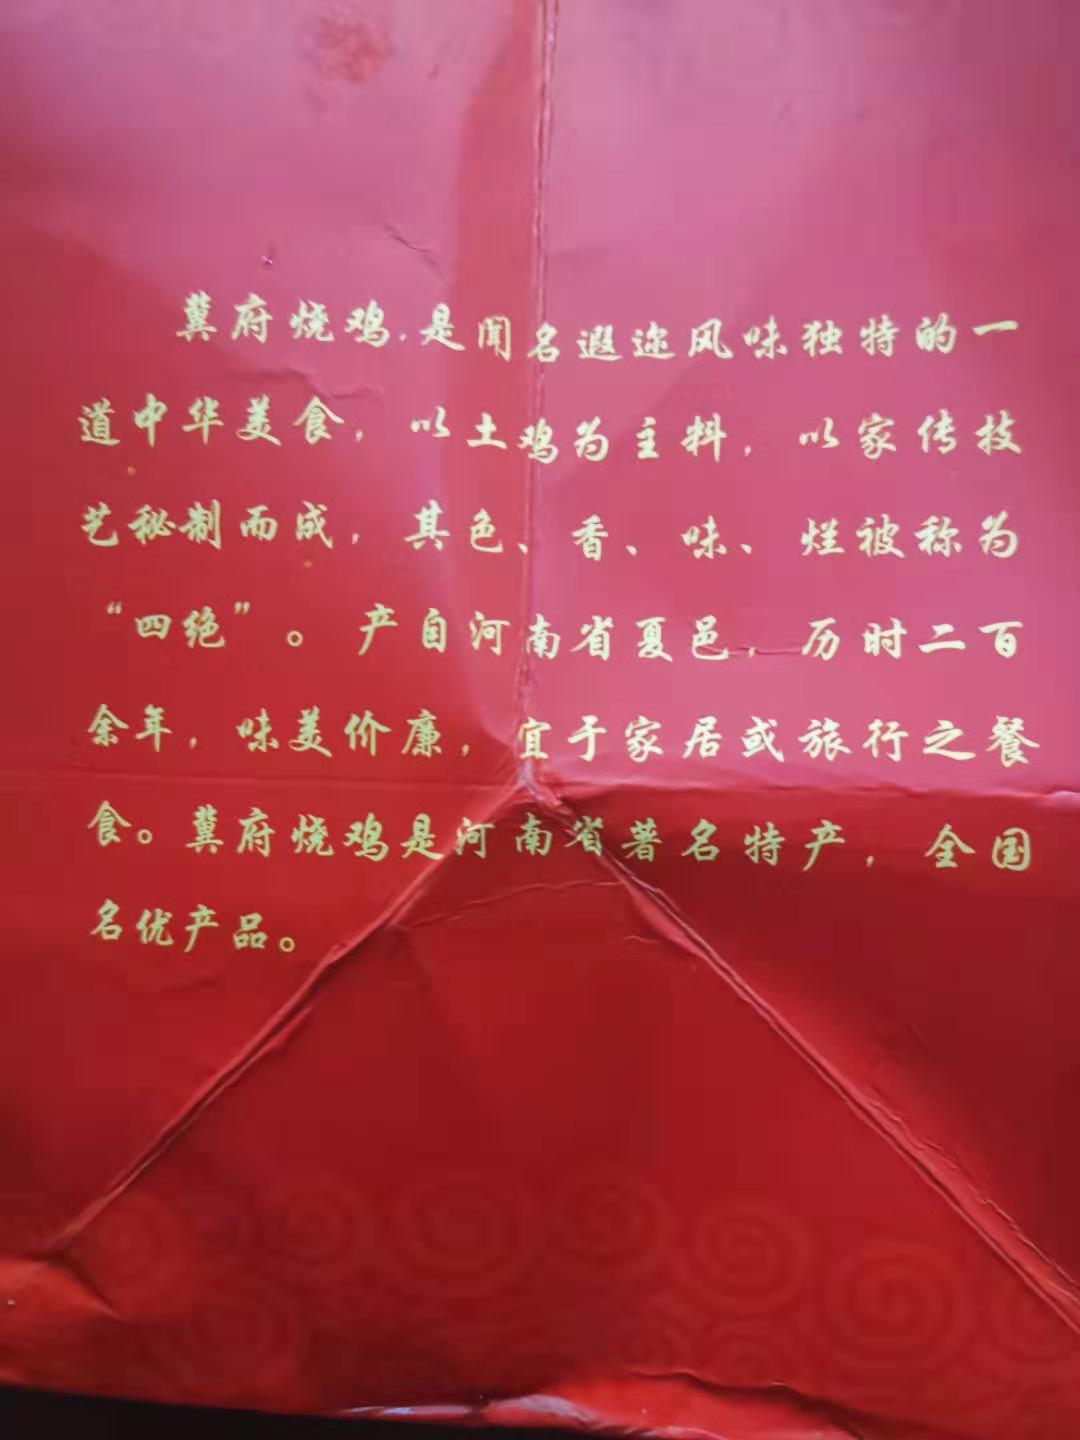 冀府烧鸡.是闻名遐迩风味独特的一
道中华美食，以土鸡为主料，以家传技
艺秘制而成，其色、香、味、烂被称为
“四绝”。产自河南省夏邑，历时二百
余年，味美价廉，宜于家居或旅行之餐
食。冀府烧鸡是河南省著名特产，全国
名优产品。